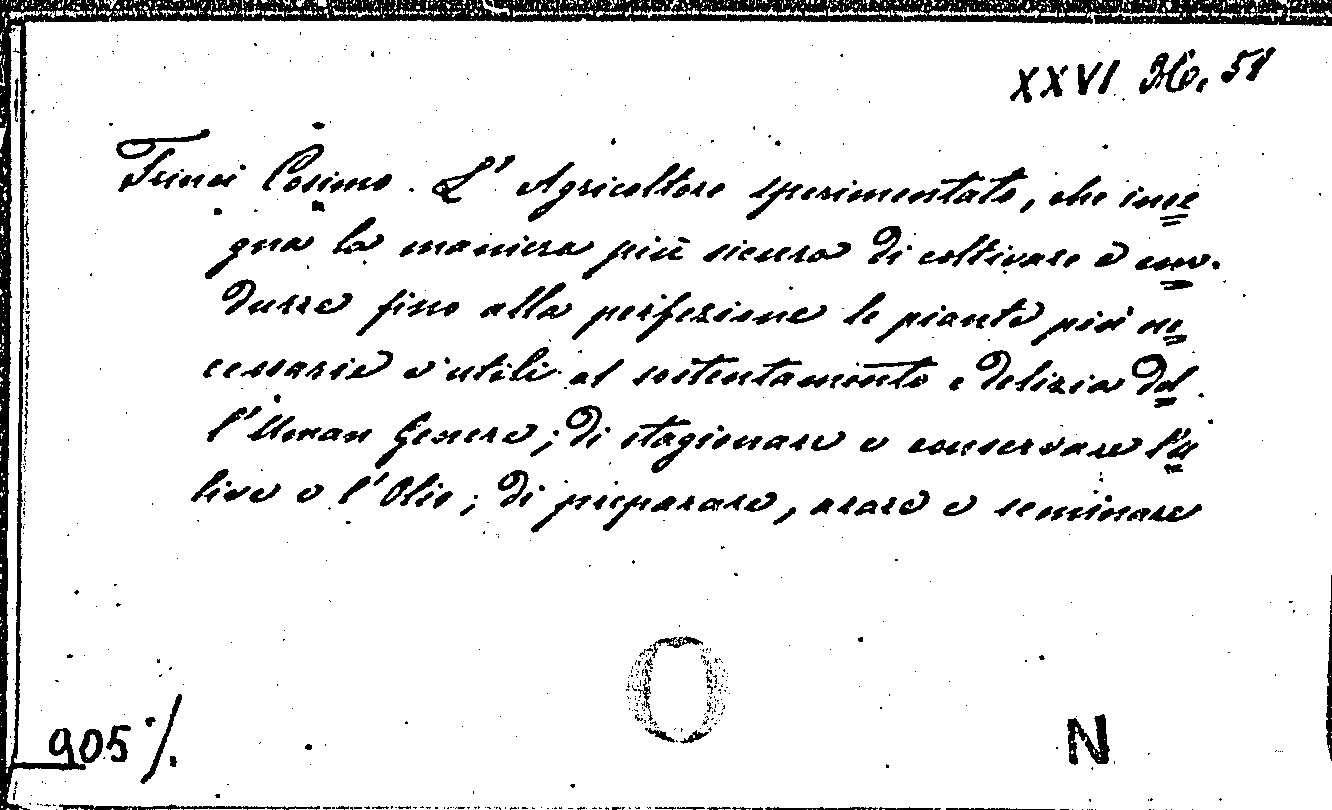 XXVI H. 58
Trinci Cosimo. L' Agricoltore sperimentato, che inse=
gna la maniera più sicura di coltivare e con=
durre fino alla perfezione le piante più ne=
cessarie e' utili al sostentamento e delizia del=
l'Uman Genere; di stagionare e conservare l'u=
live e l'Olio; di preparare, arare e seminare
905 %.
O
N